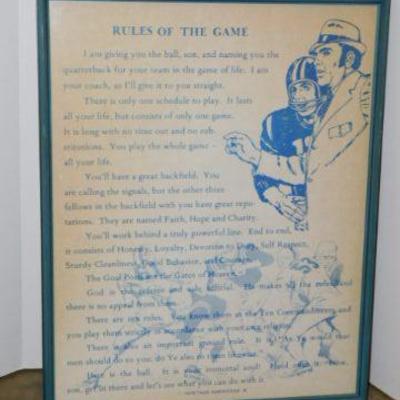 RULES OF THE GAME
I am giving you the ball, son, and naming you the
quarterback for your team in the game of life. I am
your coach, so I'll give it to you straight.
There is only one schedule to play. It lasts
all your life, but consists of only one game.
It is long with no time out and no sub-
stitutions. You play the whole game -
all your life.
You'll have a great backfield. You
are calling the signals, but the other three
fellows in the backfield with you have great repu-
tations. They are named Faith, Hope and Charity.
You'll work behind a truly powerful line. End to end,
it consists of Honesty, Loyalty, Devotion to Duty, Self Respect,
Sturdy Cleanliness, Good Behavior, and Courage.
The Goal Posts are the Gates of Heaven.
God is the referee and sole official. He makes all the rules and
there is no appeal from them.
There are ten rules. You know them as the Ten Commandments and
you play them strictly in accordance with your own religion.
There is also an important ground rule. It is "As Ye would that
men should do to you, do Ye also to them likewise."
Here is the ball. It is your immortal soul! Hold onto it. Now,
son, get in there and let's see what you can do with it.